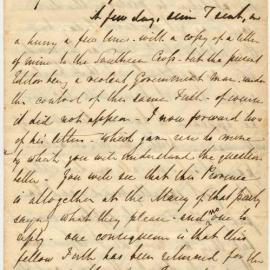 A few days since I sent, in
a hurry a few lines with a copy of a letter
of mine to the Southern Cross but the present
Editor being a violent Government man under
the control of this same of course
it did not appear - I now forward two
of his letters - which gave rise to mine
by which you will understand the question
better - You will see that this Province
is altogether at the Mercy of that party
says what they please - and no one to
reply - one consequence is that this
fellow has been returned for the